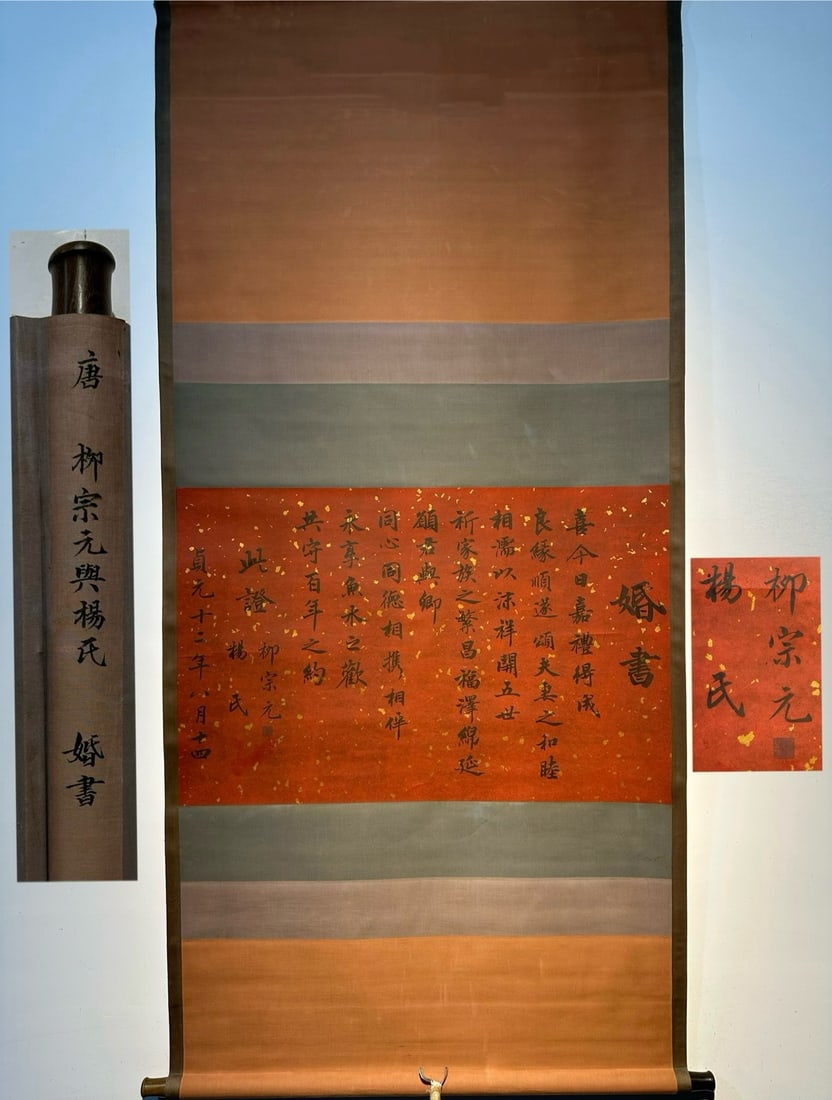 唐 柳宗元與楊氏 婚書
婚書
喜今日嘉禮得成
良緣順遂頌夫妻之和睦
相濡以沫祥開五世
祈家族之繁昌福澤綿延
願君與卿
同心同德相攜相伴
永享魚水之歡
共守百年之約
此證
柳宗元
楊氏
貞元十二年八月十四
柳宗元
楊氏